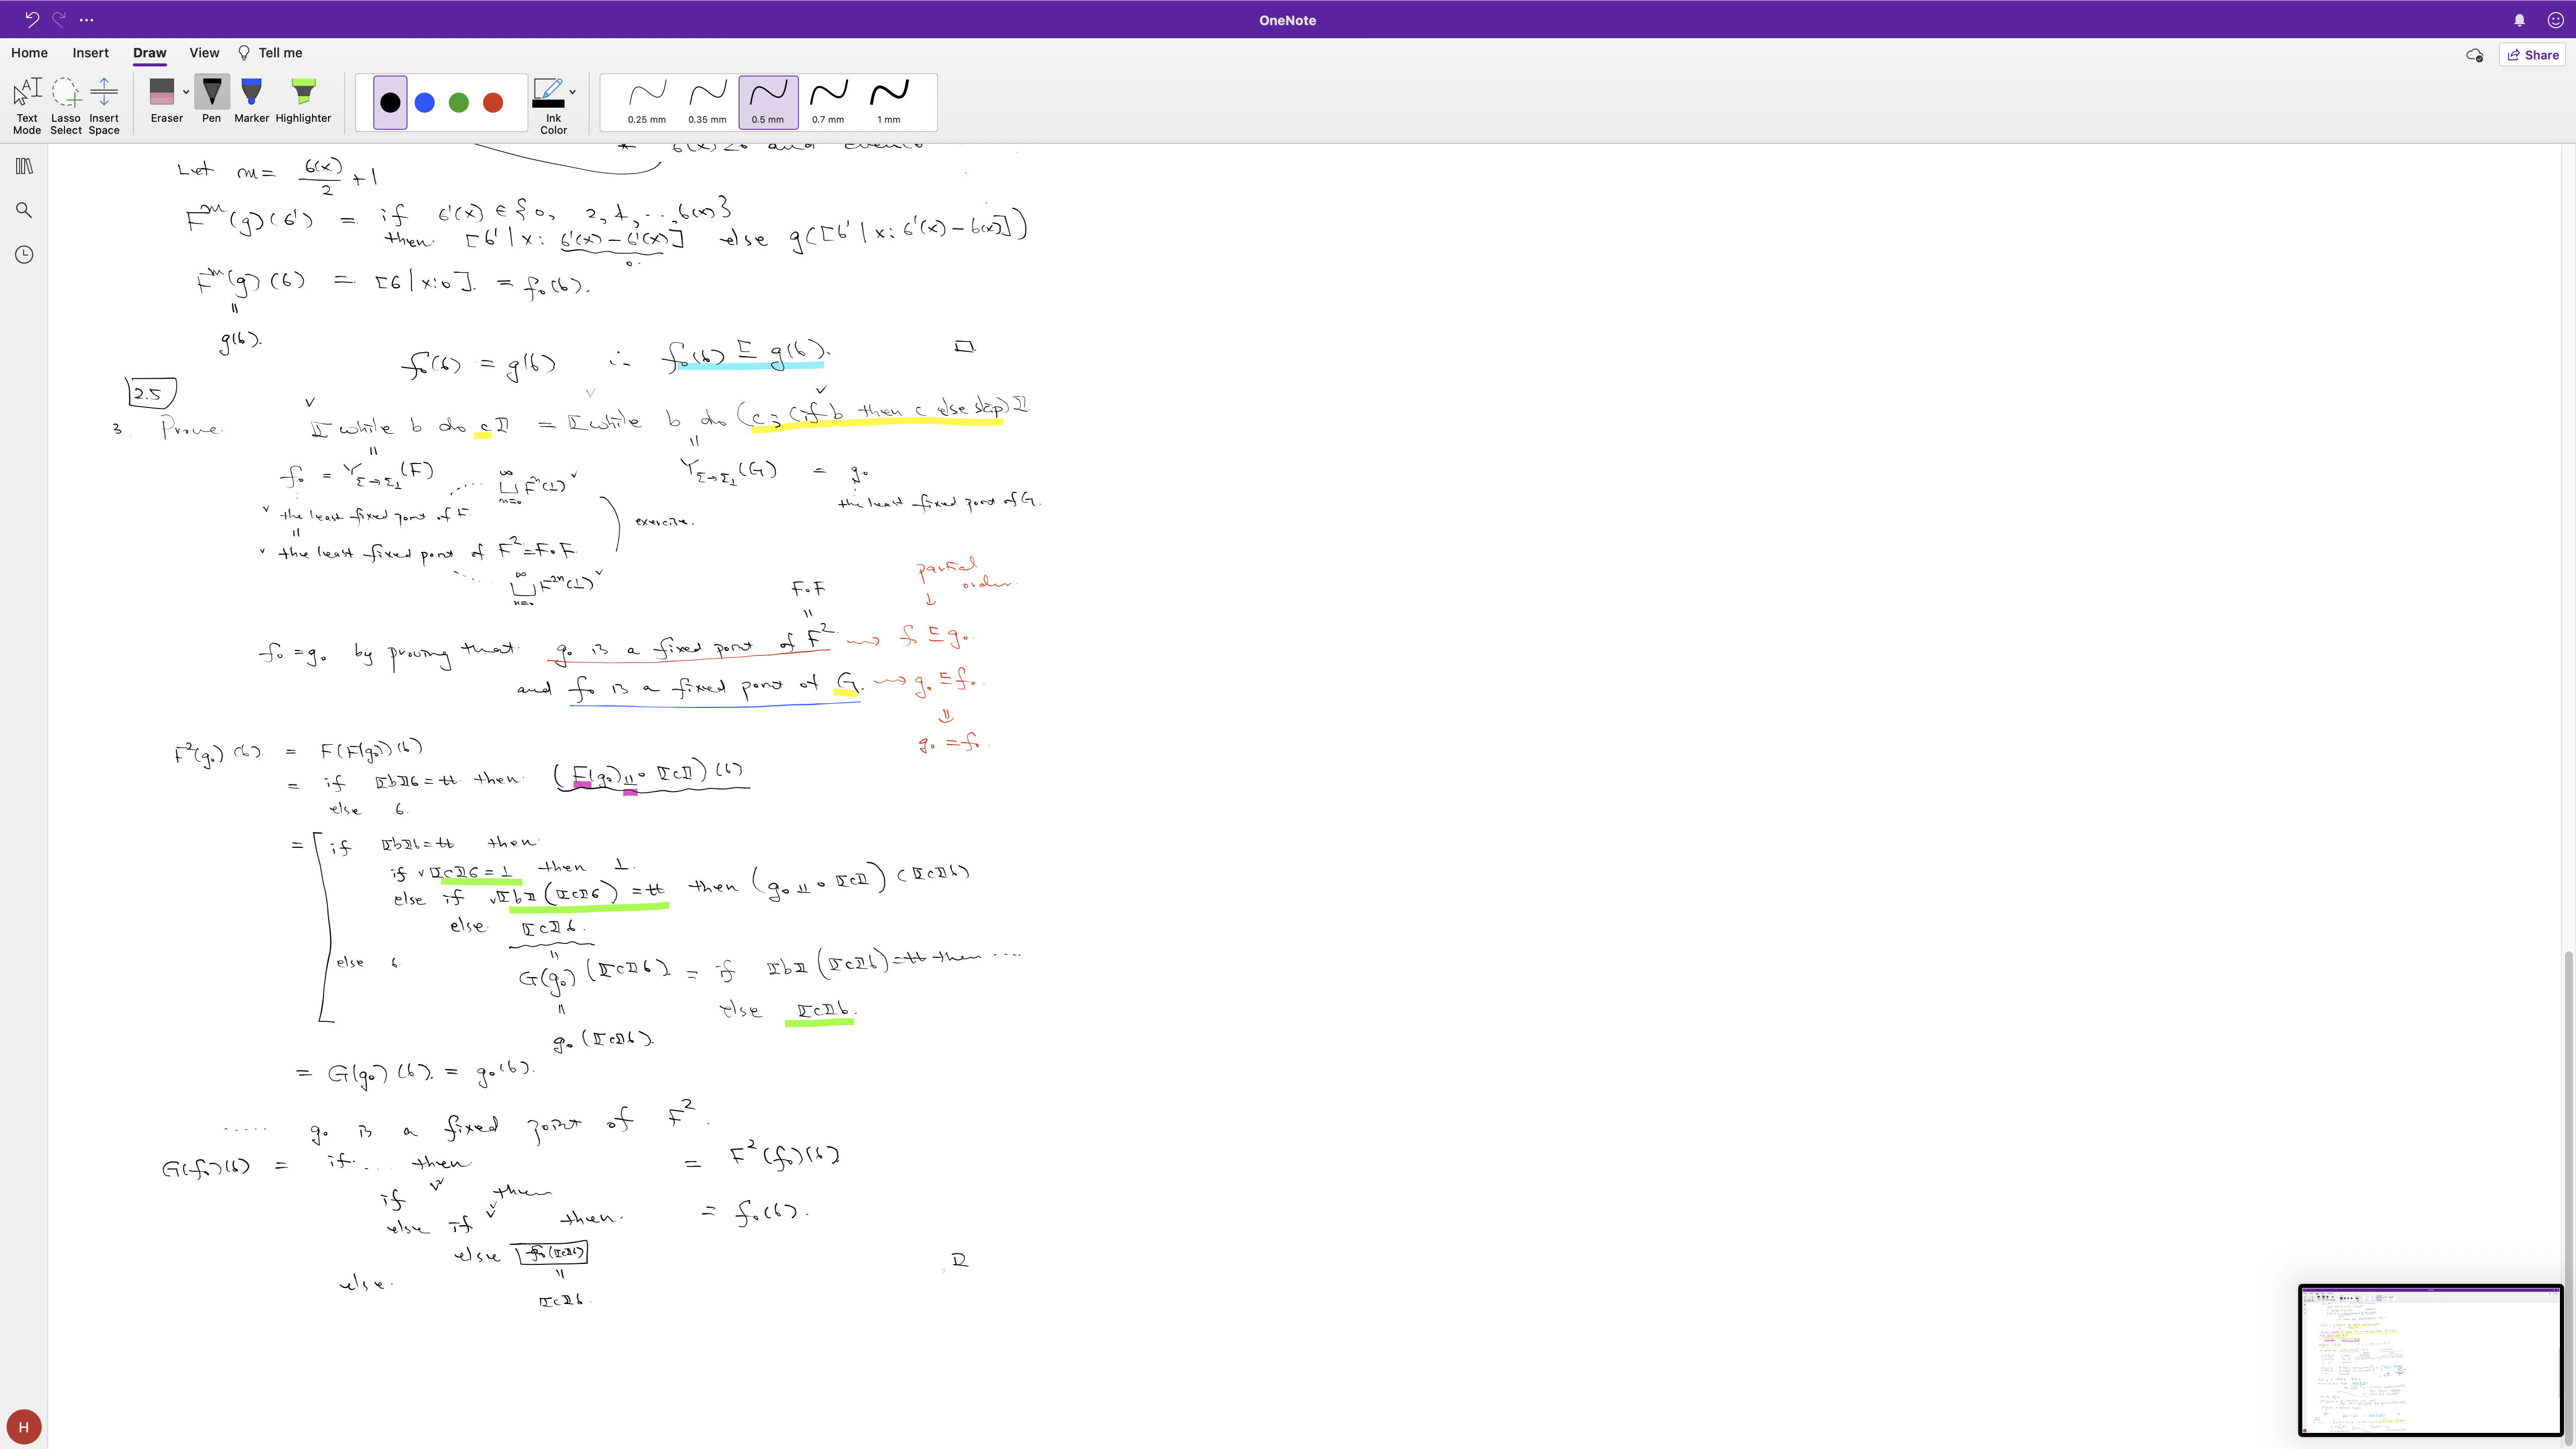 OneNote
Home Insert Draw View Tell me
Share
Text Mode
Lasso Select
Insert Space
Eraser
Pen
Marker
Highlighter
Ink Color
0.25 mm
0.35 mm
0.5 mm
0.7 mm
1 mm
Let m = σ(x)/2 + 1
F^m(g)(σ') = if σ'(x) ∈ {0, 2, 4, ..., σ(x)}
then [σ' | x: σ'(x) - σ'(x)] else g([σ' | x: σ'(x) - σ(x)])
0.
F^m(g)(σ) = [σ | x:0]. = f₀(σ).
॥
g(σ).
f₀(σ) = g(σ) ∴ f₀(σ) ⊑ g(σ). □
2.5
3. Prove. ⟦while b do c⟧ = ⟦while b do (c; (if b then c else skip)⟧
f₀ = Y_{Σ→Σ⊥}(F) ⊔_{n=0}^∞ F^n(⊥) Y_{Σ→Σ⊥}(G) = g₀
the least fixed point of F. the least fixed point of G.
exercise.
the least fixed point of F² = F∘F
⊔_{n=0}^∞ F^{2n}(⊥)
F∘F
partial order.
↓
f₀ = g₀ by proving that g₀ is a fixed point of F² ⇝ f₀ ⊑ g₀.
and f₀ is a fixed point of G. ⇝ g₀ ⊑ f₀.
⇓
g₀ = f₀.
F²(g₀)(σ) = F(F(g₀))(σ)
= if ⟦b⟧σ = tt then (F(g₀)⊥⊥ ∘ ⟦c⟧)(σ)
else σ.
= if ⟦b⟧σ = tt then
if ⟦c⟧σ = ⊥ then ⊥.
else if ⟦b⟧(⟦c⟧σ) = tt then (g₀⊥⊥ ∘ ⟦c⟧)(⟦c⟧σ)
else ⟦c⟧σ.
else σ
G(g₀)(⟦c⟧σ) = if ⟦b⟧(⟦c⟧σ) = tt then ....
else ⟦c⟧σ.
g₀(⟦c⟧σ).
= G(g₀)(σ). = g₀(σ).
..... g₀ is a fixed point of F².
G(f₀)(σ) = if ... then = F²(f₀)(σ)
if then
else if then. = f₀(σ).
else f₀(⟦c⟧σ)
else.
⟦c⟧σ.
□
H